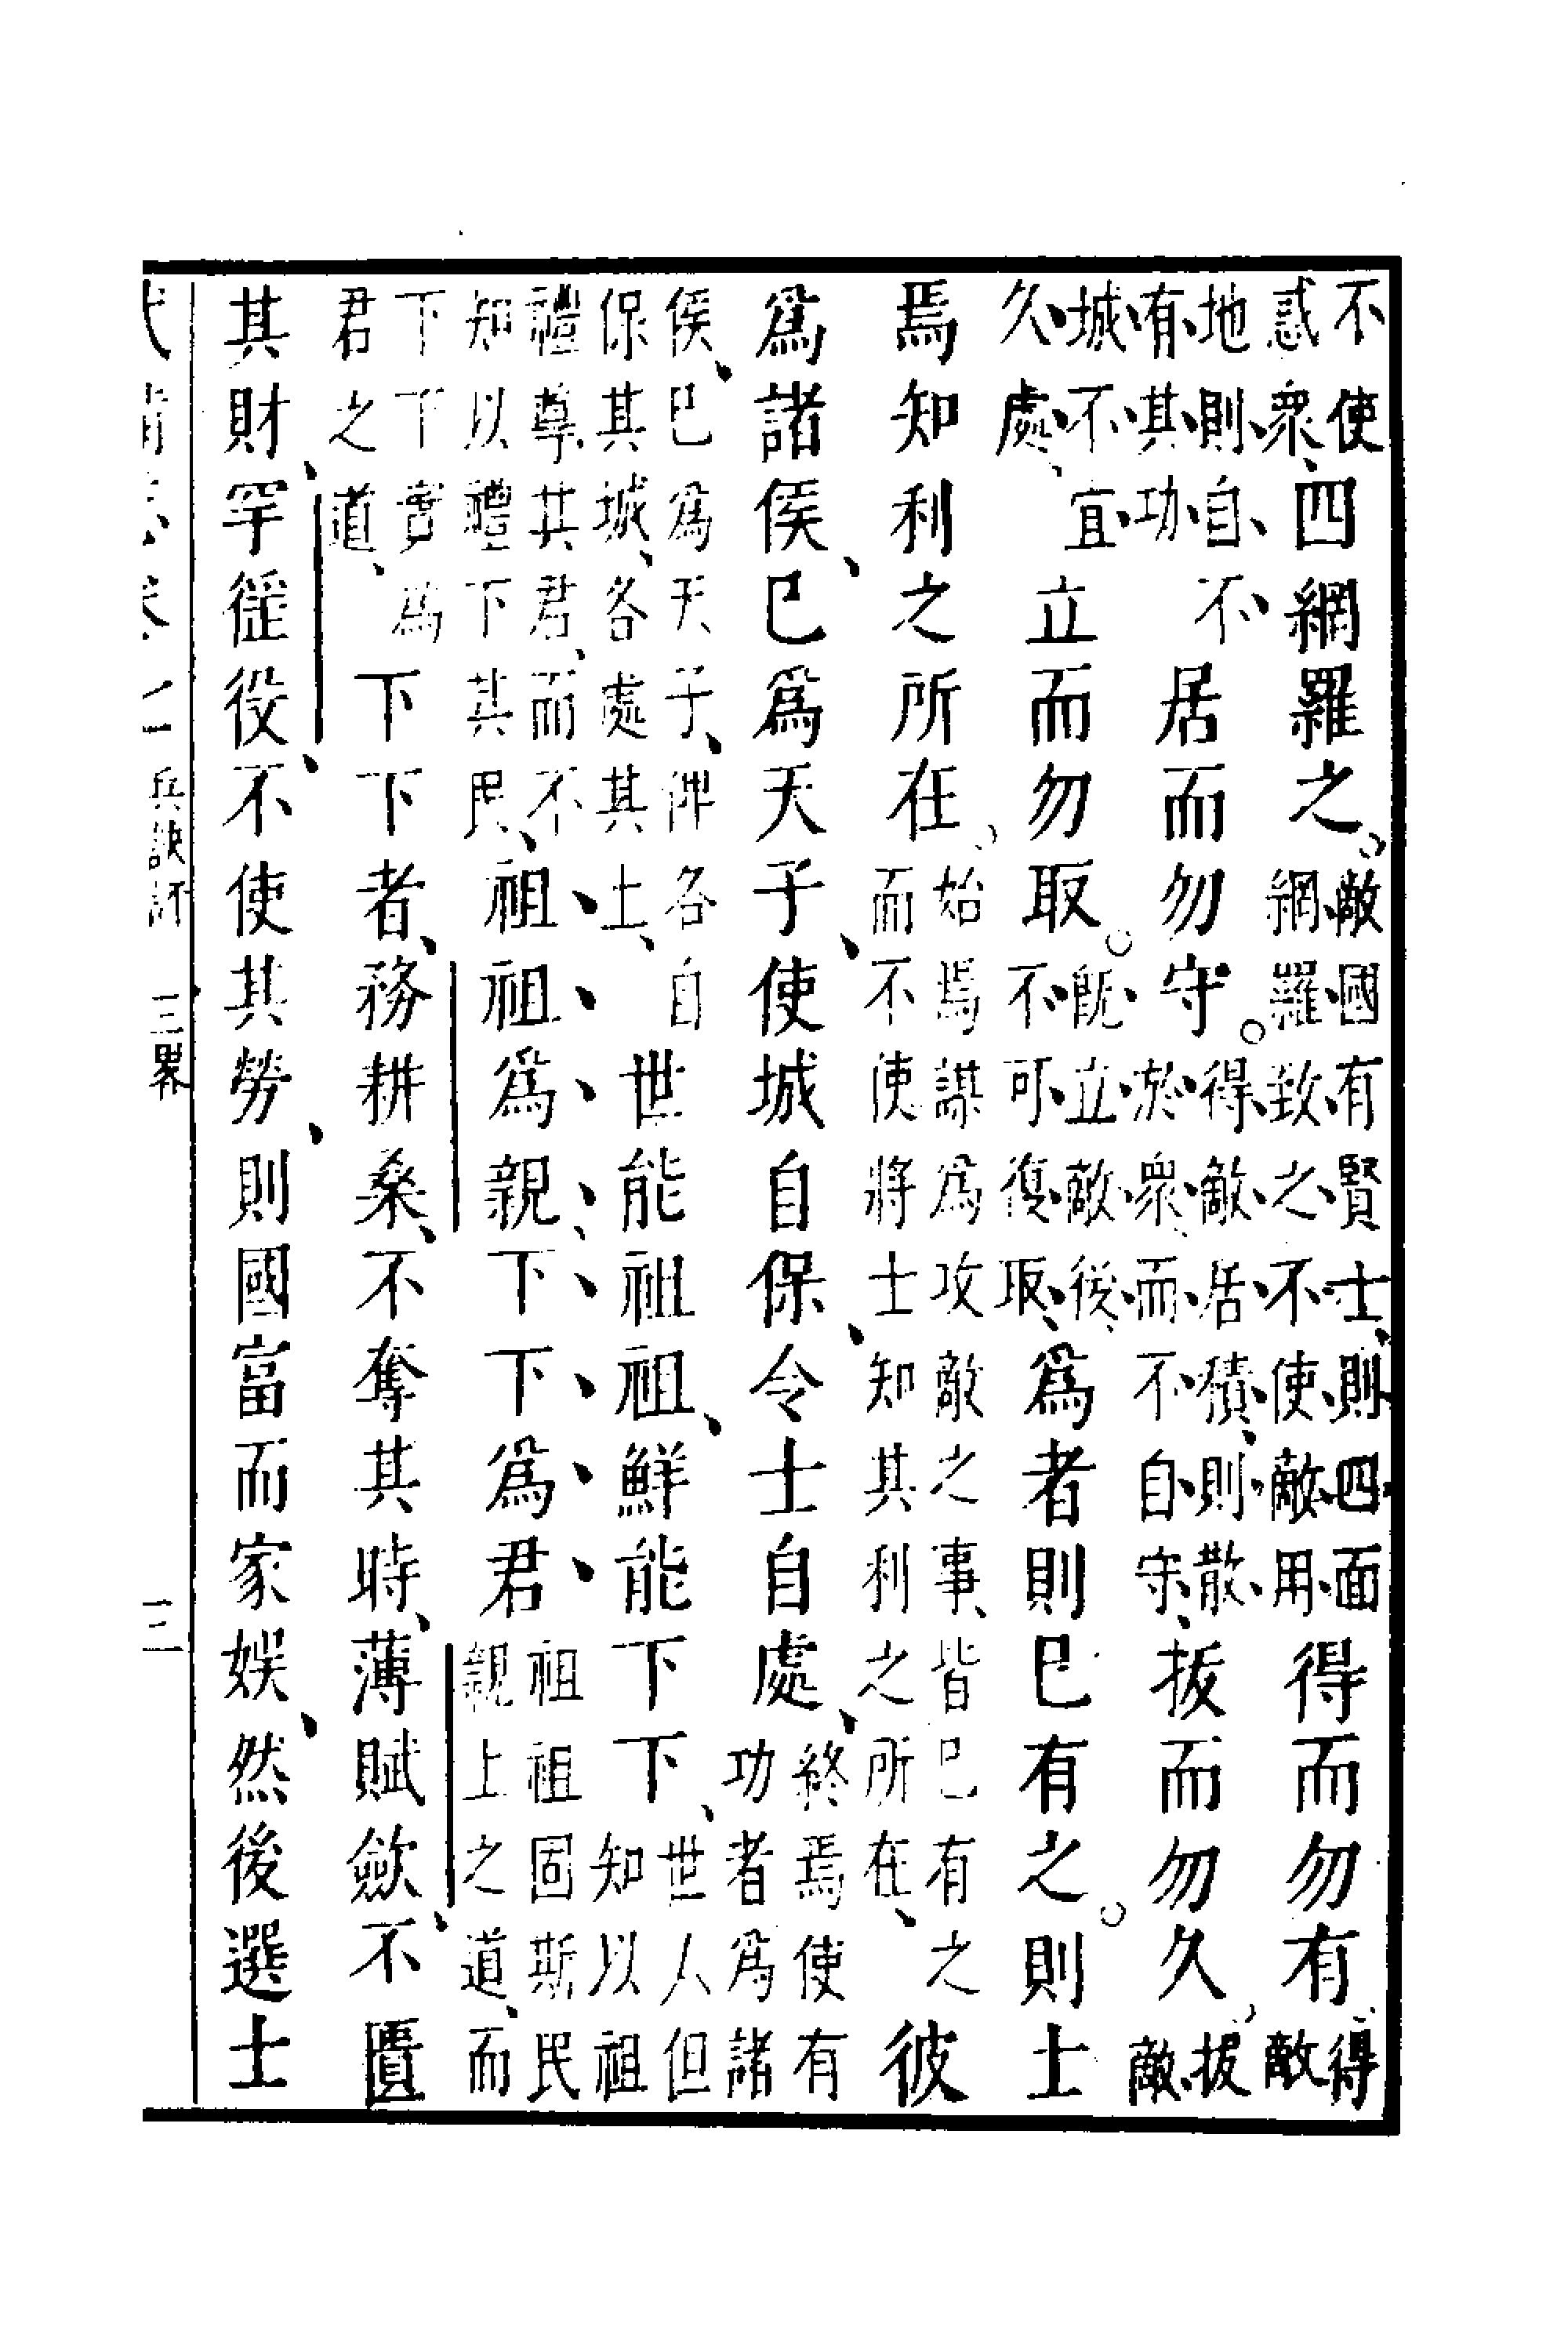 不使惑衆、四網羅之。敵國有賢士、則四面網羅致之、不使敵用得而勿有得敵
地則自不有其功居而勿守。得敵居積、則散於衆而不自守、拔而勿久。拔敵
城不宜久處、立而勿取。既立敵後、不可復取、爲者則巳有之。則士
焉知利之所在。始焉謀爲攻敵之事、皆巳有之而不使將士知其利之所在、彼
爲諸侯、巳爲天子、使城自保、令士自處、終焉使有功者爲諸
侯、巳爲天子、俾各自保其城、各處其土、世能祖祖、鮮能下下、世人但知以祖
禮尊其君、而不知以禮下其民、祖祖爲親下下爲君祖祖固斯民親上之道、而
下下實爲君之道、下下者、務耕桑、不奪其時、薄賦斂、不匱
其財、罕徭役、不使其勞、則國富而家娛、然後選士
兵訣評 三畧 三